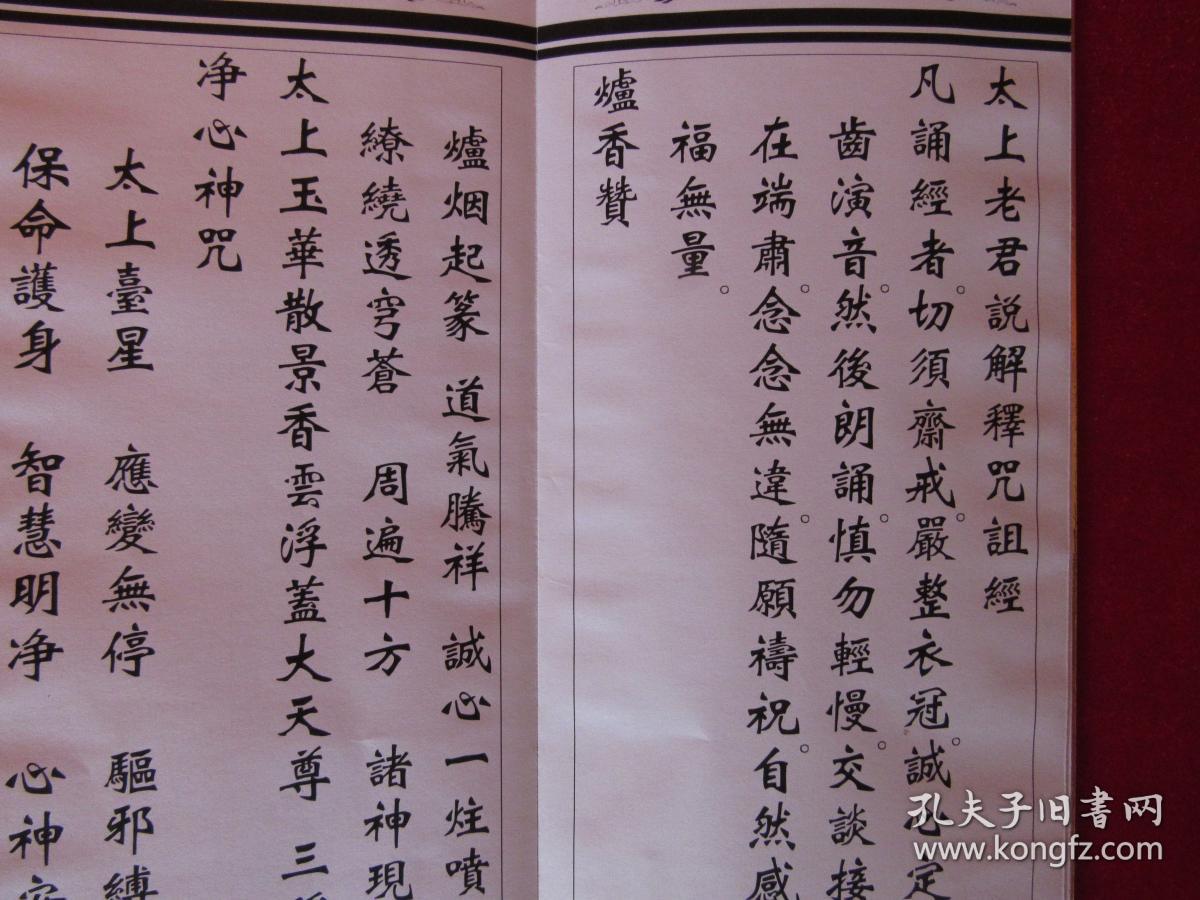 太上老君說解釋咒詛經
凡誦經者。切須齋戒。嚴整衣冠。誠心定
齒演音。然後朗誦。慎勿輕慢。交談接
在端肅。念念無違。隨願禱祝。自然感
福無量。
爐香贊
爐烟起篆 道氣騰祥 誠心一炷噴
繚繞透穹蒼 周遍十方 諸神現
太上玉華散景香雲浮蓋大天尊 三
净心神咒
太上臺星 應變無停 驅邪縛
保命護身 智慧明净 心神安
孔夫子旧書网
www.kongfz.com